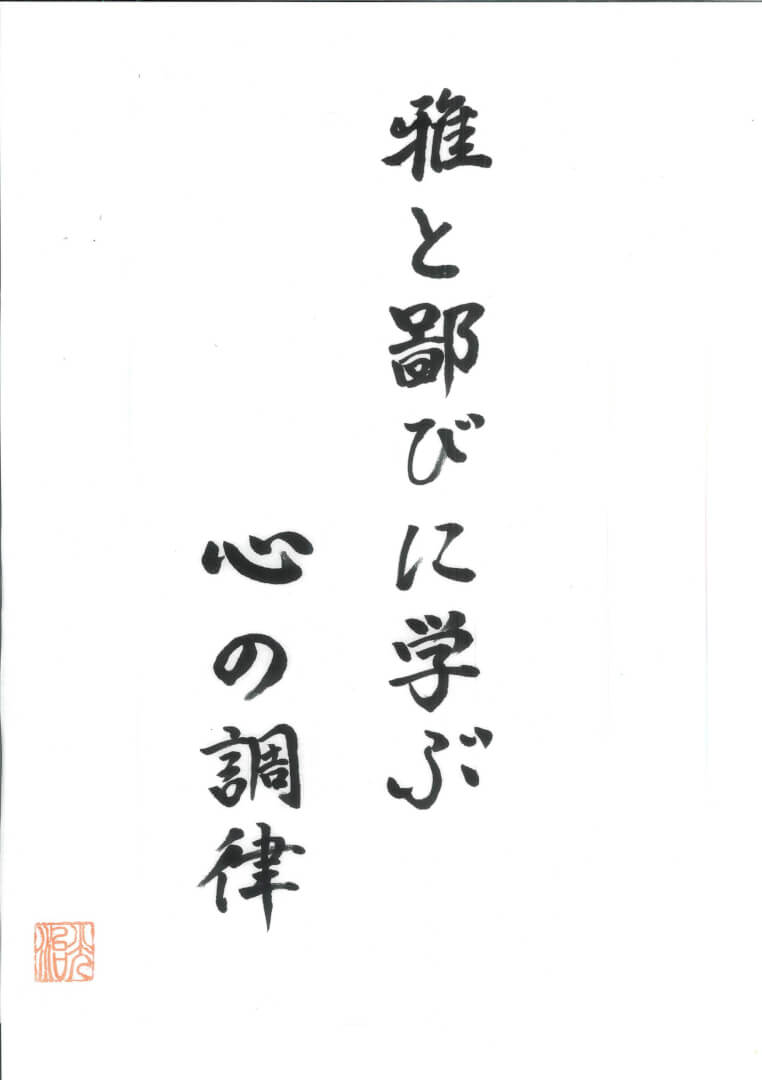 雅と鄙びに学ぶ
心の調律